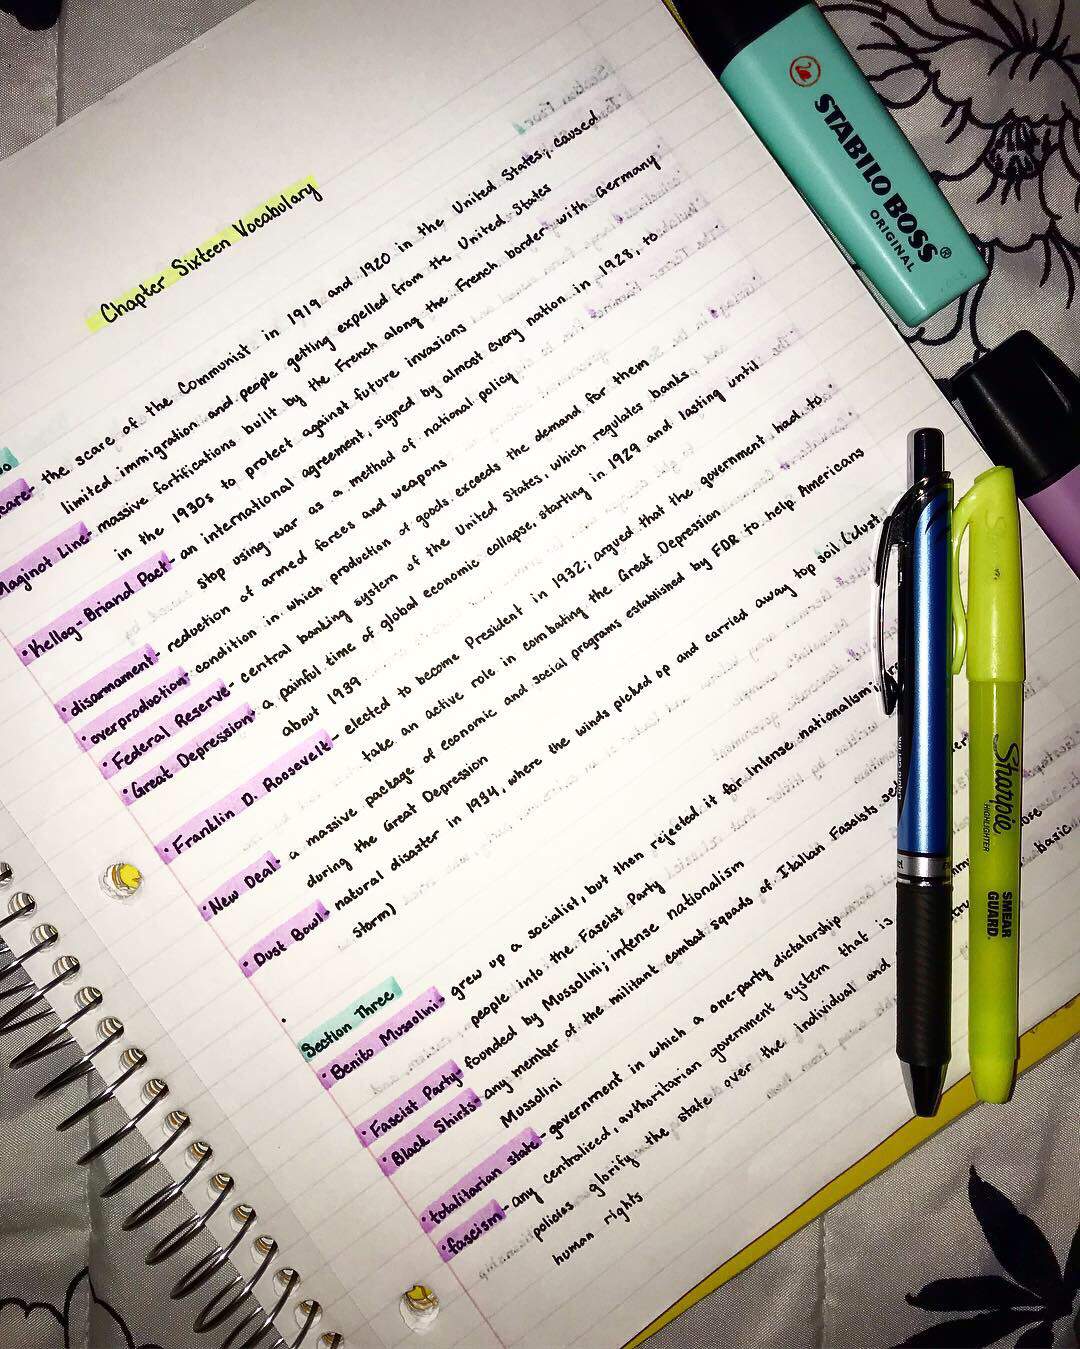 Chapter Sixteen Vocabulary
the scare of the Communist in 1919 and 1920 in the United States; caused
limited immigration and people getting expelled from the United States
Maginot Line- massive fortifications built by the French along the French border with Germany
in the 1930s to protect against future invasions
• Kellog-Briand Pact- an international agreement, signed by almost every nation in 1928, to
stop using war as a method of national policy
• disarmament- reduction of armed forces and weapons
• overproduction- condition in which production of goods exceeds the demand for them
• Federal Reserve- central banking system of the United States, which regulates banks
• Great Depression- a painful time of global economic collapse, starting in 1929 and lasting until
about 1939
• Franklin D. Roosevelt- elected to become President in 1932; argued that the government had to
take an active role in combating the Great Depression
• New Deal- a massive package of economic and social programs established by FDR to help Americans
during the Great Depression
• Dust Bowl- natural disaster in 1934, where the winds picked up and carried away top soil (dust
storm)
Section Three
• Benito Mussolini- grew up a socialist, but then rejected it for intense nationalism;
people into the Fascist Party
• Fascist Party- founded by Mussolini; intense nationalism
• Black Shirts- any member of the militant combat squads of Italian Fascists
Mussolini
• totalitarian state- government in which a one-party dictatorship
• fascism- any centralized, authoritarian government system that is basic
policies glorify the state over the individual and
human rights
STABILO BOSS®
ORIGINAL
Sharpie
HIGHLIGHTER
SMEAR
GUARD®